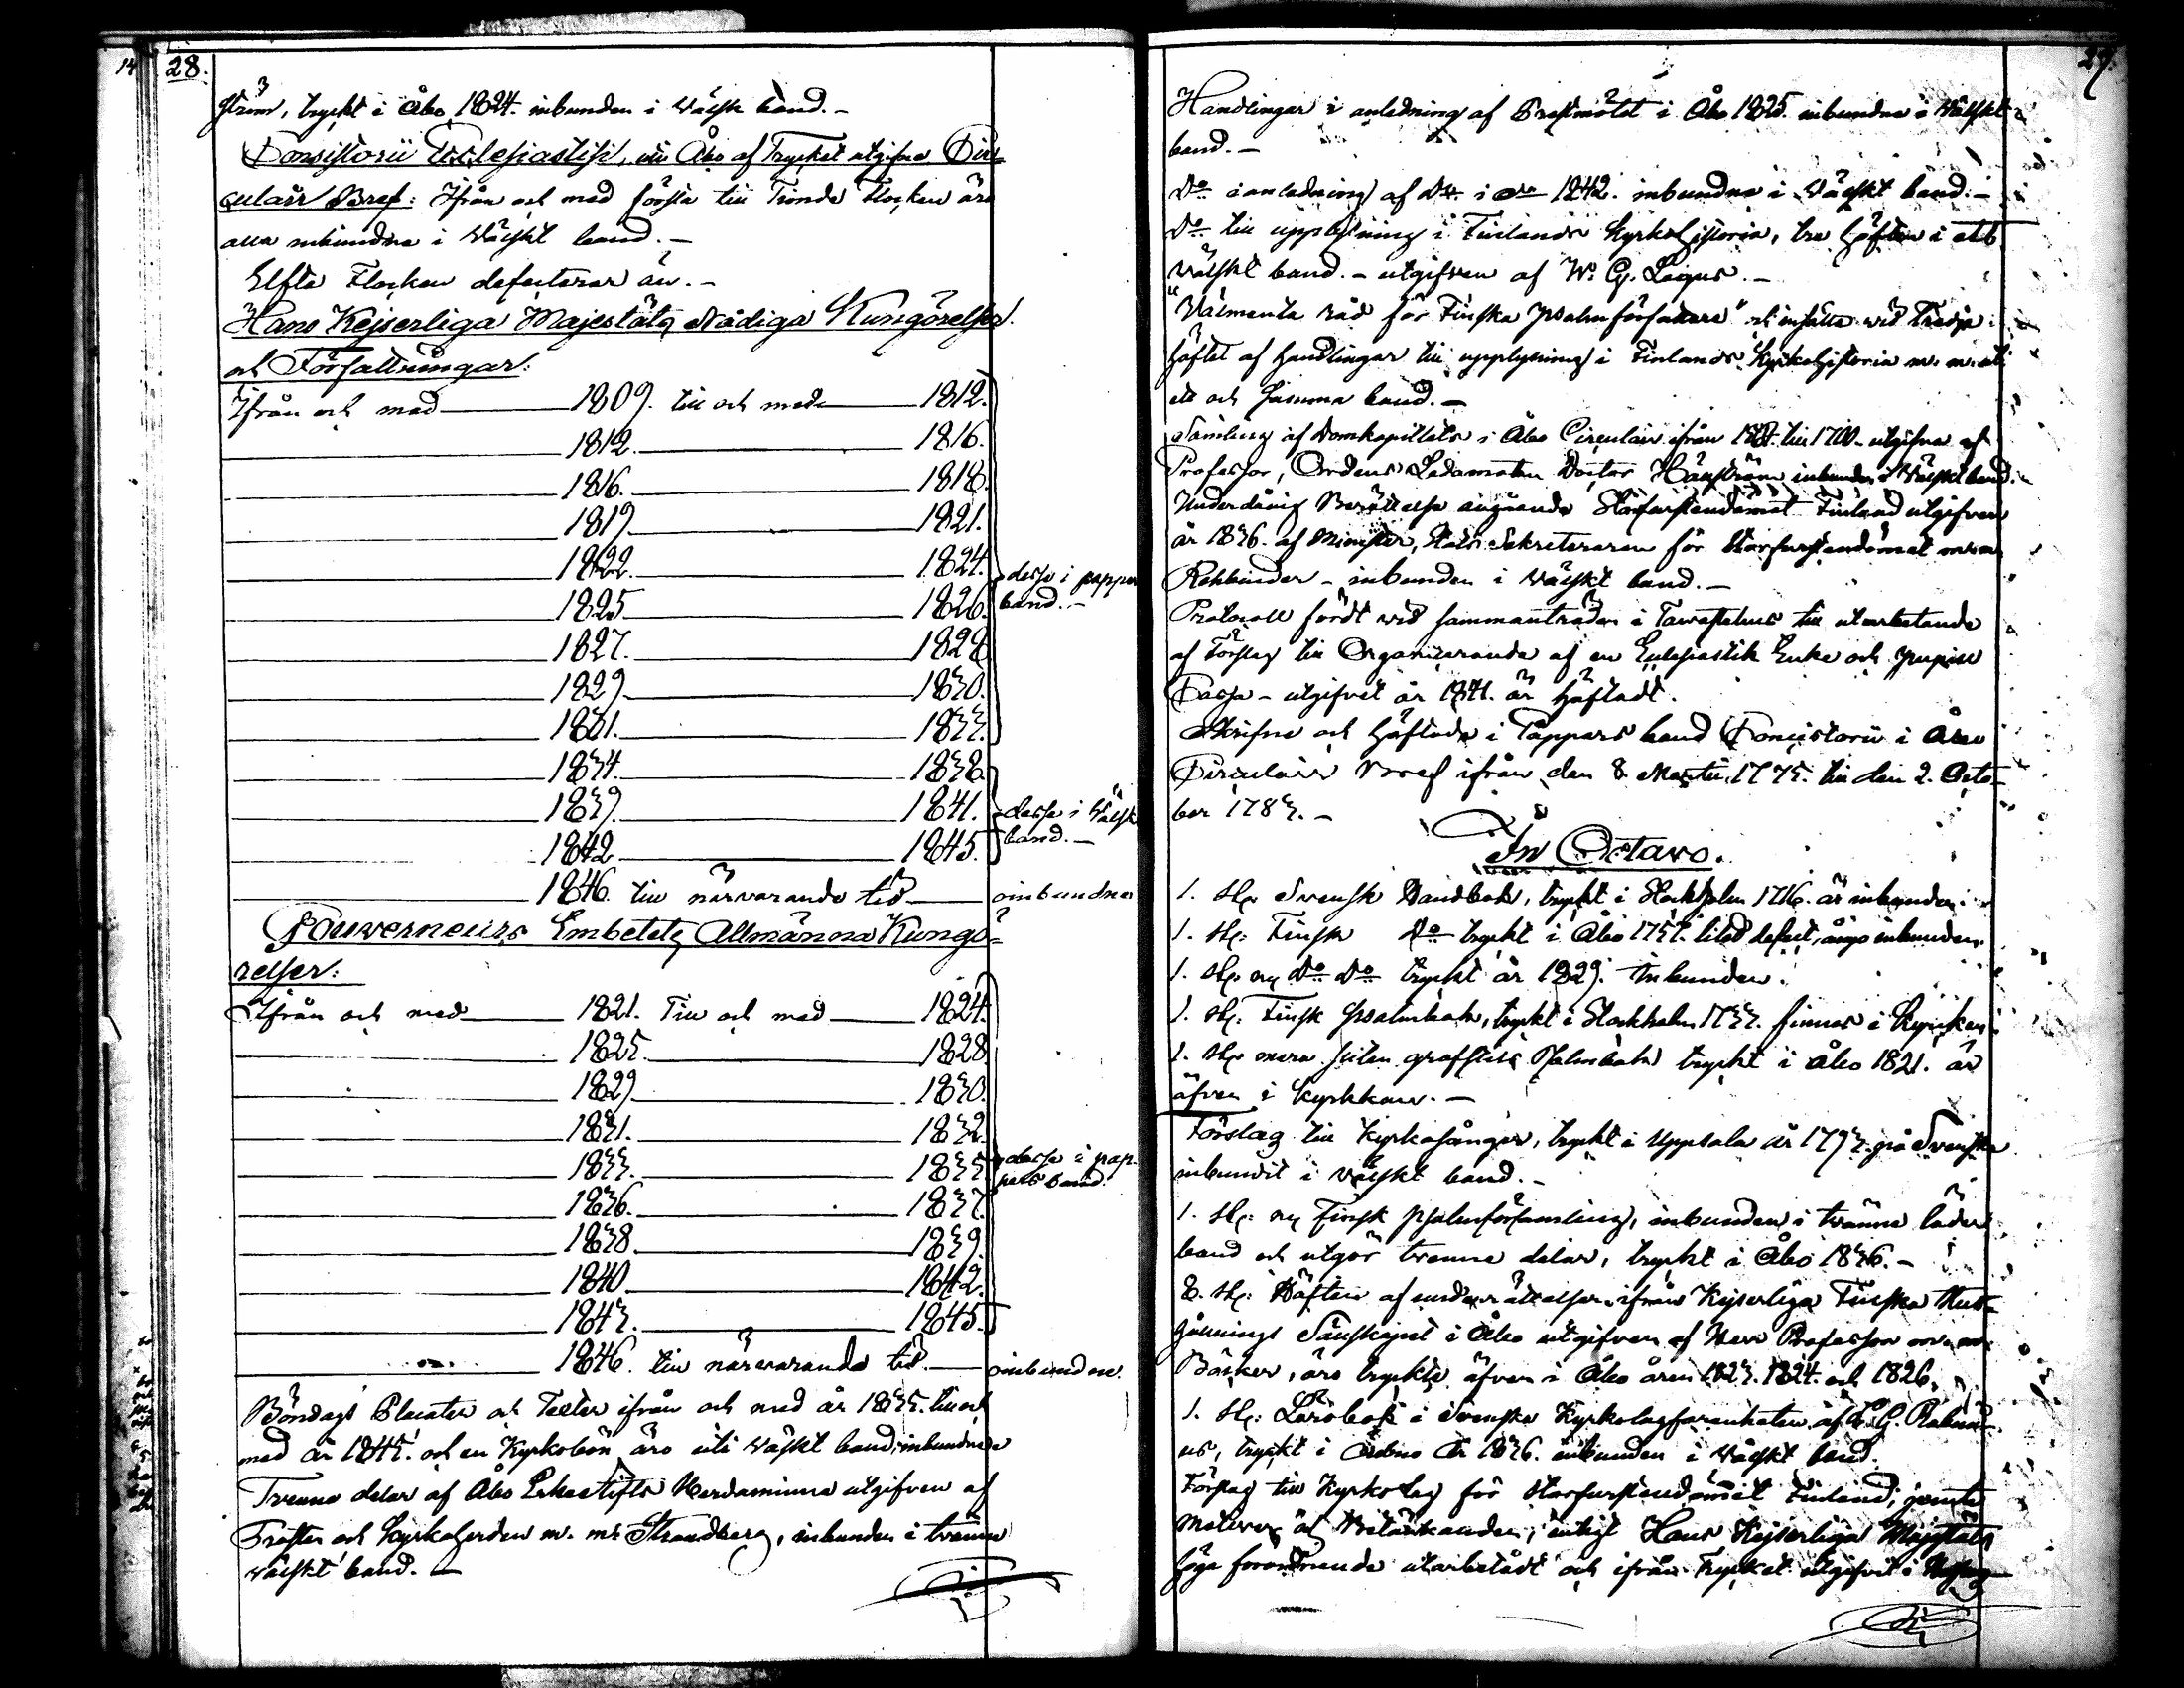 28.
ström, tryckt i Åbo 1824. inbunden i Välsk band.-
Consistorii Ecclesiastici, uti Åbo af Trycket utgifna Cir=
culair Bref: Ifrån och med första till Tionde Flocken äro
alla inbundna i Välskt band.-
Elfte Flocken defecterar än.-
Hans Kejserliga Majestäts Nådiga Kungörelser
och Författningar:
Ifrån och med 1809. till och med 1812.
1812. 1816.
1816. 1818.
1819. 1821.
1822. 1824.
1825 1826.
1827. 1828
1829. 1830.
1831. 1833.
dessa i papper
band.-
1834. 1838.
1839. 1841.
1842 1845.
dessa i Välsk
band.-
1846. till närvarande tid oinbundna
Gouverneurs Embetets Allmänna Kungö=
relser:
Ifrån och med 1821. Till och med 1824.
1825. 1828.
1829. 1830.
1831. 1832.
1833. 1835.
1836. 1837.
1838. 1839.
1840. 1842.
1843. 1845.
dessa i pap-
pers band.
1846. till närvarande tid. oinbundne.
Böndags Placater och Texter ifrån och med år 1835. till och
med år 1845. och en Kyrkobön äro uti Välskt band inbundna
Trenne delar af Åbo Erkestifts Herdaminne utgifven af
Prosten och Kyrkoherden m. m. Strandberg, inbunden i trenne
välskt band.-
29.
Handlingar i anledning af Prestmötet i Åbo 1825. inbundna i Välskt
band.-
Do i anledning af Do i do 1842. inbundna i Välskt band.-
Do till upplysning i Finlands Kyrkohistoria, tre häften i ett
välskt band.- utgifven af W. G. Lagus.-
"Välmenta råd för Finska psalmförfattare" och införde vid tredje
häftet af handlingar till upplysning i Finlands Kyrkohistoria m. m. uti
ett och samma band.-
Samling af Domkapitlets i Åbo Circulair ifrån till 1700- utgifna af
Professor, Ordens Ledamoten Doctor inbunden i Välskt band.
Underdånig Berättelse angående Storfurstendömet Finland utgifven
år 1836. af Minister, Stats-Sekreteraren för Storfurstendömet m. m.
Rehbinder - inbunden i Välskt band.-
Protocoll fördt vid sammanträden i Tawastehus till utarbetande
af Förslag till Organiserande af en Ecclesiastik Enke och pupill
Cassa- utgifvet år 1841. är häftadt.
Skrifne och häftade i Pappers band Concistorii i Åbo
Circulair Bref ifrån den 8 Martii 1775. till den 2. Octo-
ber 1783.-
In Octavo.
1. st. Svensk Handbok, tryckt i Stockholm 1716. är inbunden.
1. st: Finsk Do tryckt i Åbo 1757. litet defect, ånyo inbunden.
1. st. ny Do Do tryckt år 1829. inbunden.
1. st: Finsk psalmbok, tryckt i Stockholm 1733. finnes i Kyrkan
1. st mera sliten Psalmbok tryckt i Åbo 1821. är
äfven i kyrkkan.-
Förslag till Kyrkosånger, tryckt i Uppsala år 1793. på Svenska
inbundit i välskt band.-
1. st: ny Finsk psalmförsamling, inbunden i tvänne läder
band och utgör trenne delar, tryckt i Åbo 1836.-
8. st: Häften af underrättelser ifrån Kejserliga Finska Hus-
hållnings Sällskapet i Åbo utgifven af Herr Professor m. m.
Böcker, äro tryckte äfven i Åbo åren 1823. 1824. och 1826.
1. st: Lärobok i Svenska Kyrkolagfarenheten af G.
us, tryckt i Örebro År 1836. inbunden i Välskt band.
Förslag till Kyrkolag för Storfurstendömet Finland, jemte
Motiver och Betänkanden, enligt Hans Kejserliga Majestäts
höga förordnande utarbetadt och ifrån Trycket utgifvit i